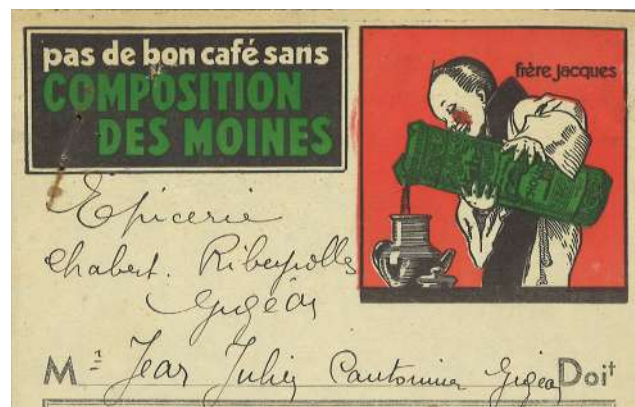 pas de bon café sans
COMPOSITION
DES MOINES
frère Jacques
Epicerie
Chabert. Ribeyrolles
Gigean
Mr Jean Julien Cantonnier Gigean Doit